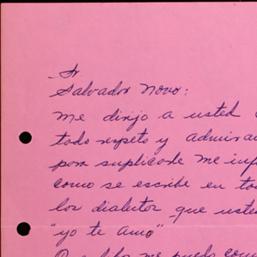 Sr
Salvador Novo:
me dirijo a usted
todo respeto y
para suplicarle me
como se escribe en
los dialectos que
"yo te amo"
me puedo